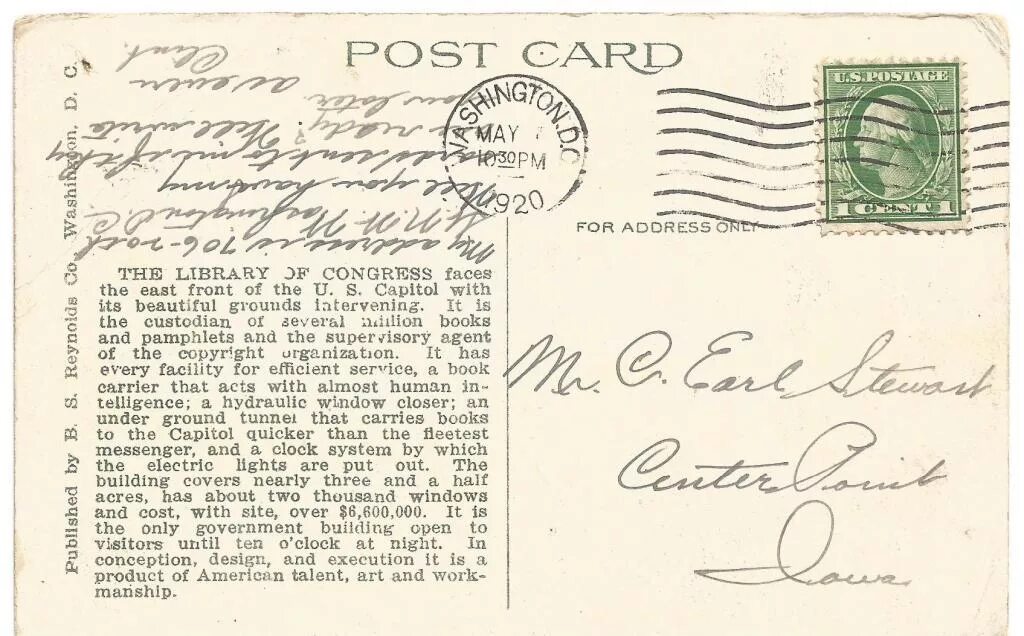 POST CARD
U.S. POSTAGE
1 CENT 1
WASHINGTON, D.C.
MAY
10 30 PM
1920
FOR ADDRESS ONLY
My address is 706-20th
St. N.W. Washington D.C.
Will you have my
sent to me if they
ready Will write
you later
as ever
Clint.
THE LIBRARY OF CONGRESS faces
the east front of the U. S. Capitol with
its beautiful grounds intervening. It is
the custodian of several million books
and pamphlets and the supervisory agent
of the copyright organization. It has
every facility for efficient service, a book
carrier that acts with almost human in-
telligence; a hydraulic window closer; an
under ground tunnel that carries books
to the Capitol quicker than the fleetest
messenger, and a clock system by which
the electric lights are put out. The
building covers nearly three and a half
acres, has about two thousand windows
and cost, with site, over $6,600,000. It is
the only government building open to
visitors until ten o'clock at night. In
conception, design, and execution it is a
product of American talent, art and work-
manship.
Published by B. S. Reynolds Co. Washington, D. C.
Mr. C. Earl Stewart
Center Point
Iowa